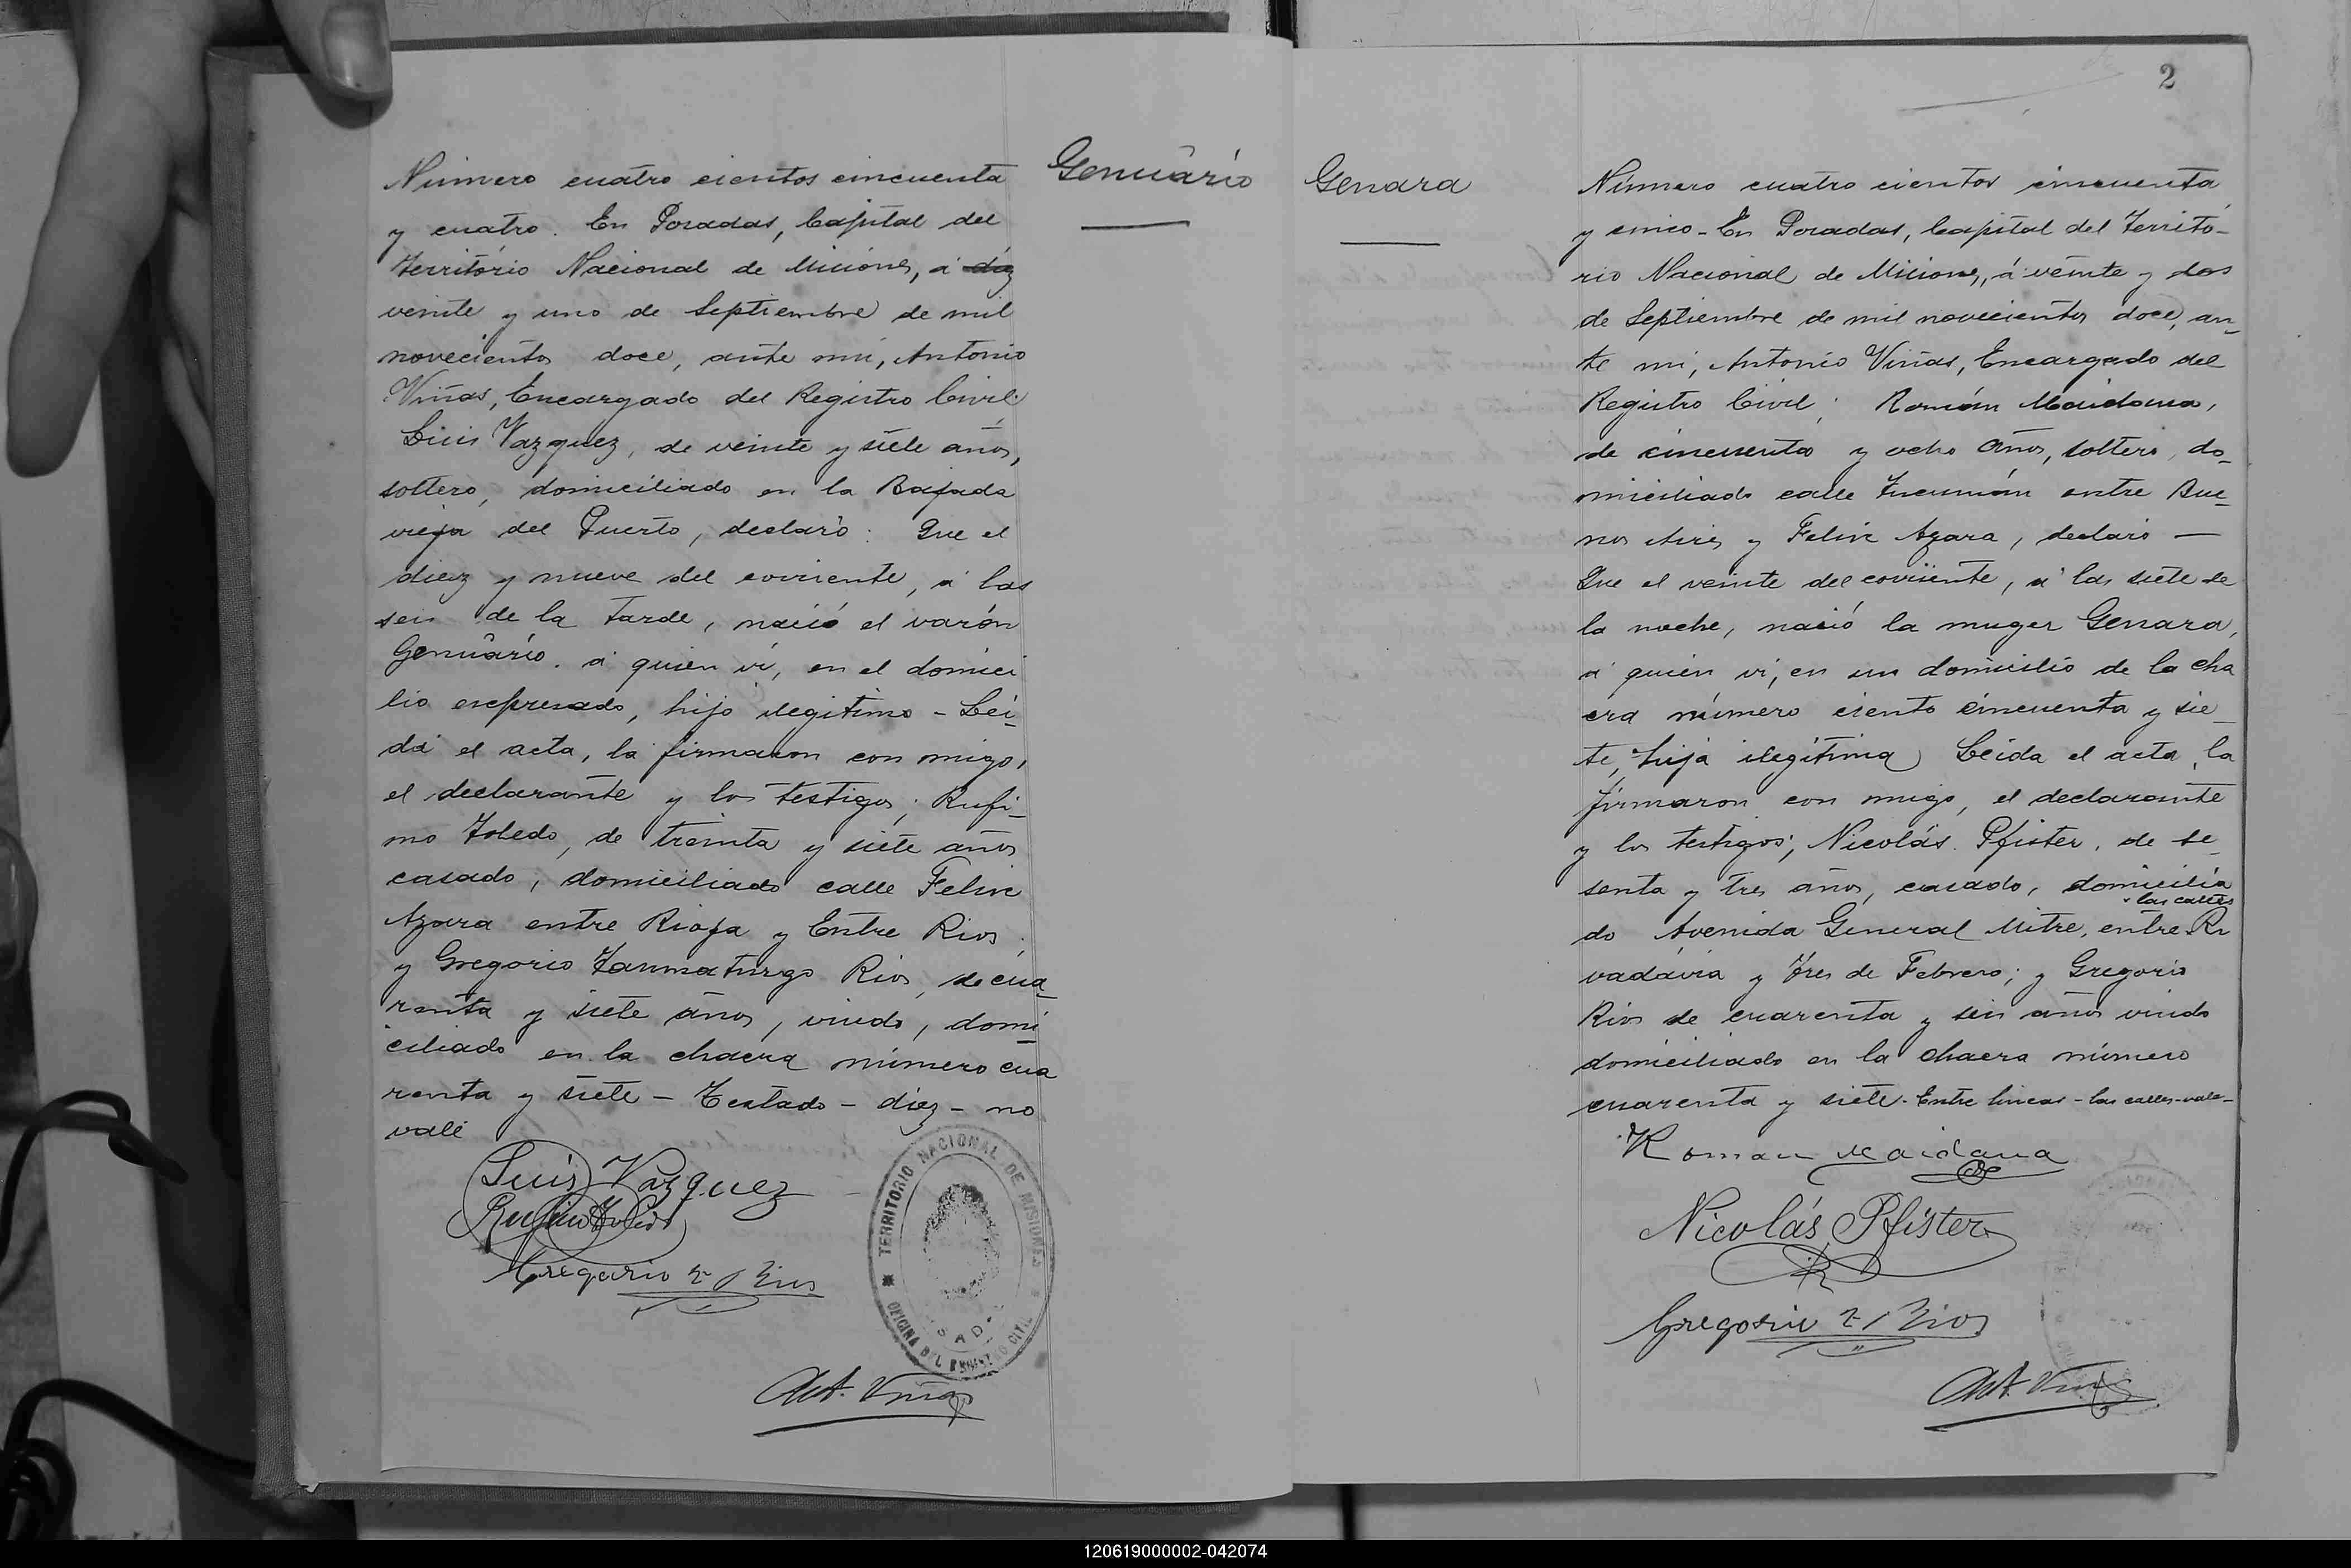 Genuário
Número cuatro cientos cincuenta
y cuatro. En Posadas, Capital del
Território Nacional de Misiones, á diez
veinte y uno de Septiembre de mil
novecientos doce, ante mi, Antonio
Viñas, Encargado del Registro Civil:
Luis Vazquez, de veinte y siete años,
soltero, domiciliado en la Bajada
vieja del Puerto, declaró: Que el
diez y nueve del corriente, á las
seis de la tarde, nació el varón
Genuário. á quien vi, en el domici
lio expresado, hijo ilegitimo - Léi-
da el acta, la firmaron con migo,
el declarante y los testigos; Rufi-
no Toledo, de treinta y siete años
casado, domiciliado calle Felix
Azara entre Rioja y Entre Rios;
y Gregorio Taumaturgo Rios, de cua-
renta y siete años, viudo, domi
ciliado en la chacra número cua
renta y siete - Testado - diez - no
vale
Luis Vazquez
Rufino Toledo
Gregorio T Rios
TERRITORIO NACIONAL DE MISIONES
OFICINA DEL REGISTRO CIVIL
Ant. Viñas
2
Genara
Número cuatro cientos cincuenta
y cinco - En Posadas, Capital del Territó-
rio Nacional de Misiones, á veinte y dos
de Septiembre de mil novecientos doce, an-
te mi, Antonio Viñas, Encargado del
Registro Civil; Román Maidana,
de cincuenta y ocho años, soltero, do-
miciliado calle Tucumán entre Bue-
nos Aires y Felix Azara, declaró —
Que el veinte del corriente, á las siete de
la noche, nació la muger Genara,
á quien vi, en un domicilio de la cha
cra número ciento cincuenta y sie-
te, hija ilegitima Leida el acta, la
firmaron con migo, el declarante
y los testigos; Nicolás Pfister, de se-
senta y tres años, casado, domicilia
las calles
do Avenida General Mitre, entre Ri
vadávia y Tres de Febrero; y Gregorio
Rios de cuarenta y seis años viudo
domiciliado en la chacra número
cuarenta y siete. Entre lineas - las calles - vale -
Roman Maidana
Nicolás Pfister
Gregorio T Rios
Ant. Viñas
120619000002-042074